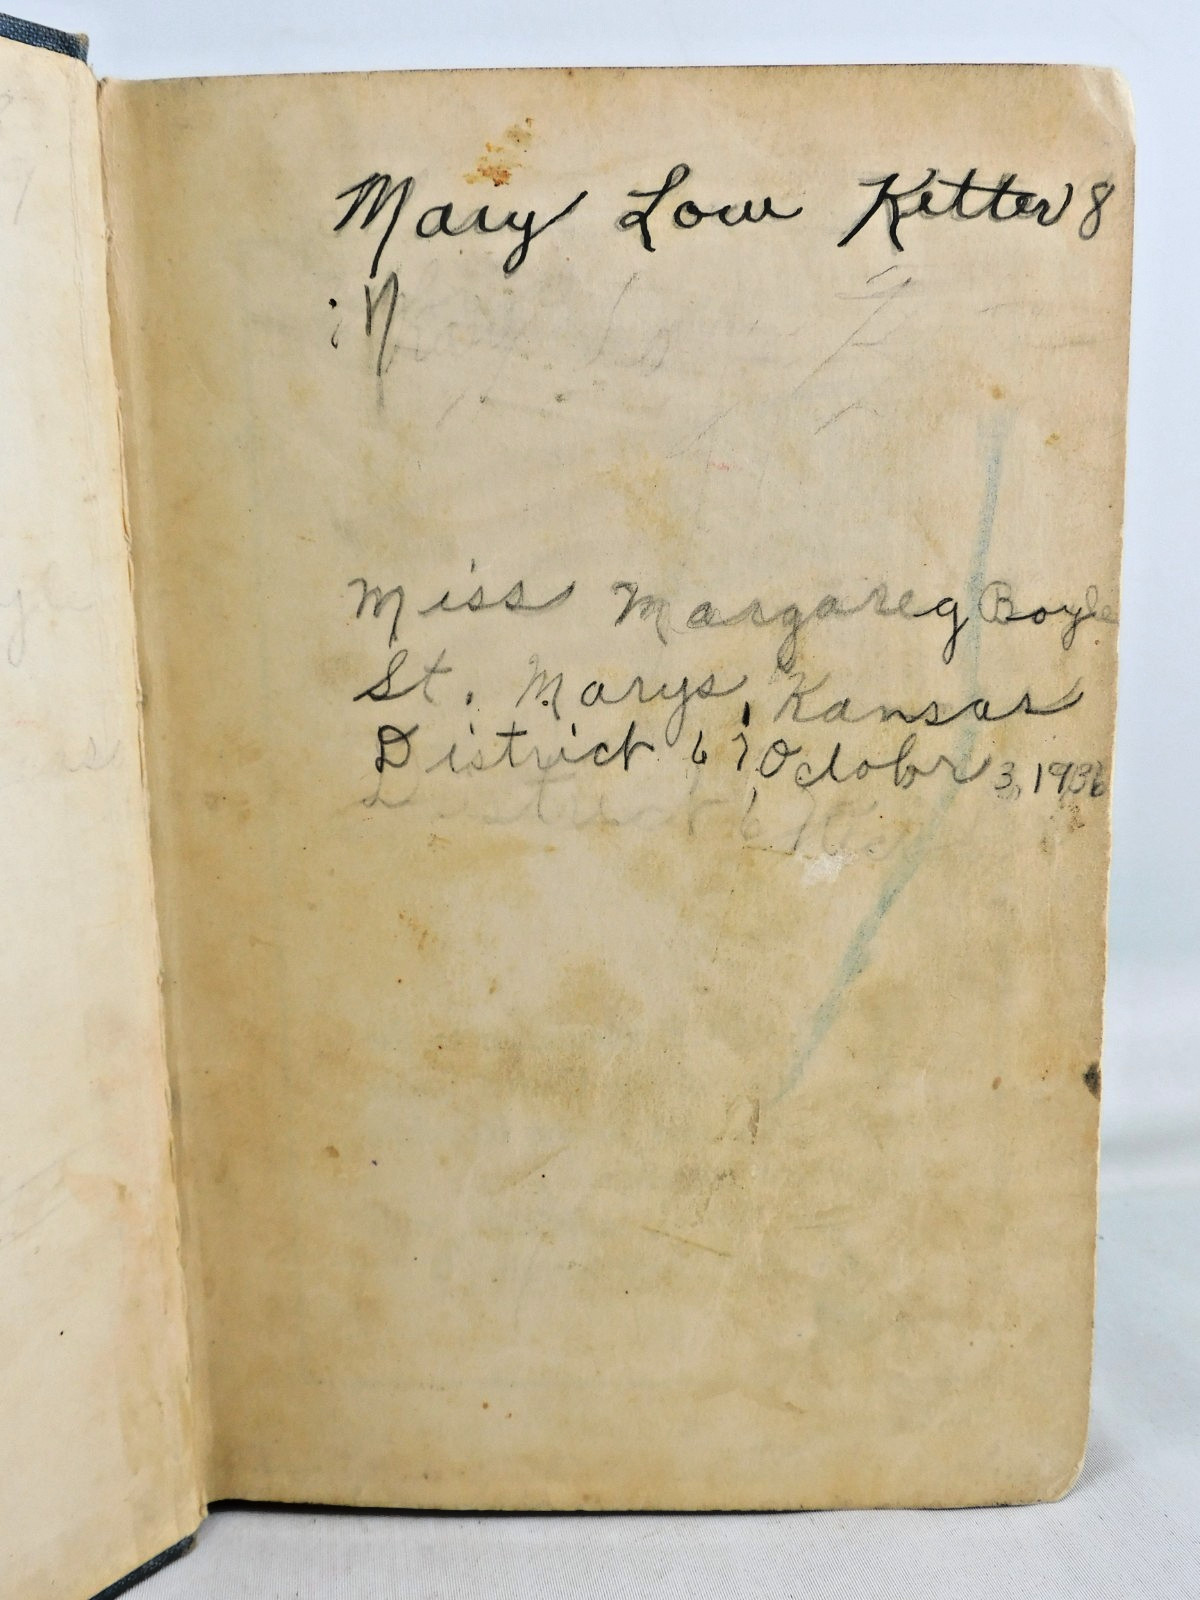 Mary Low Ketter 8
Miss Margareg Boyle
St. Marys, Kansas
District 67 October 3, 1936
District 67